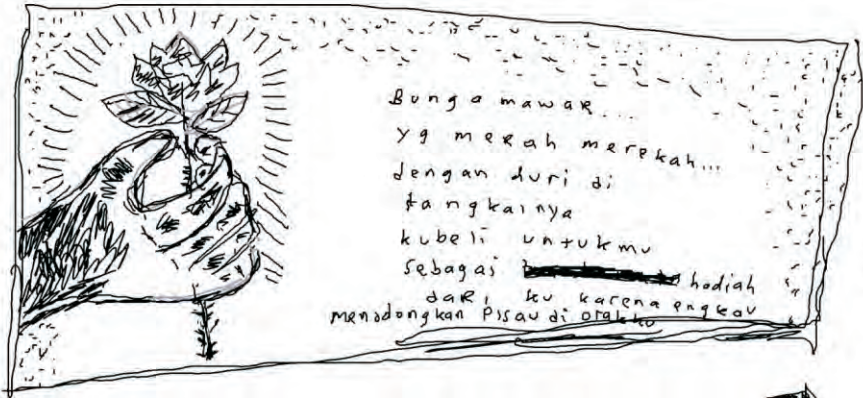 Bunga mawar...
yg merah merekah...
dengan duri di
tangkainya
kubeli untukmu
sebagai hadiah
dari ku karena engkau
menodongkan pisau di otakku